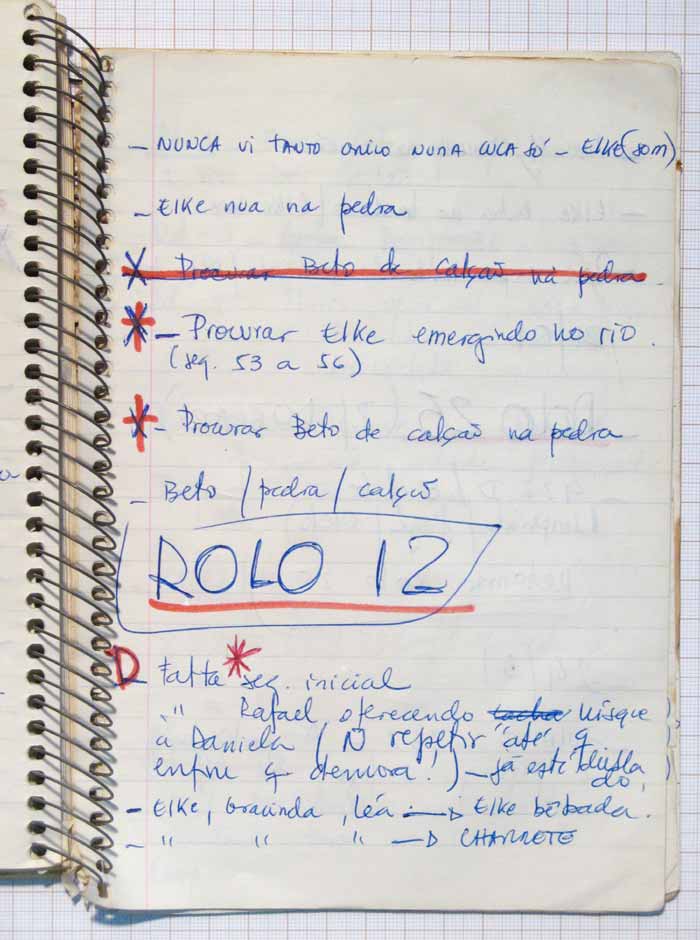 - NUNCA vi TANTO NUMA CUCA SÓ - ELKE (som)
- Elke nua na pedra
X Procurar Beto de calção na pedra
X - Procurar Elke emergindo no rio.
(seq. 53 a 56)
X - Procurar Beto de calção na pedra
- Beto / pedra / calção
ROLO 12
D - Falta * seq. inicial
" Rafael oferecendo uísque
a Daniela (Ñ repetir "até q
enfim q demora!") - já está dubla
do,
- Elke, Gracinda, Léa → Elke bêbada.
- " " " → CHARRETE